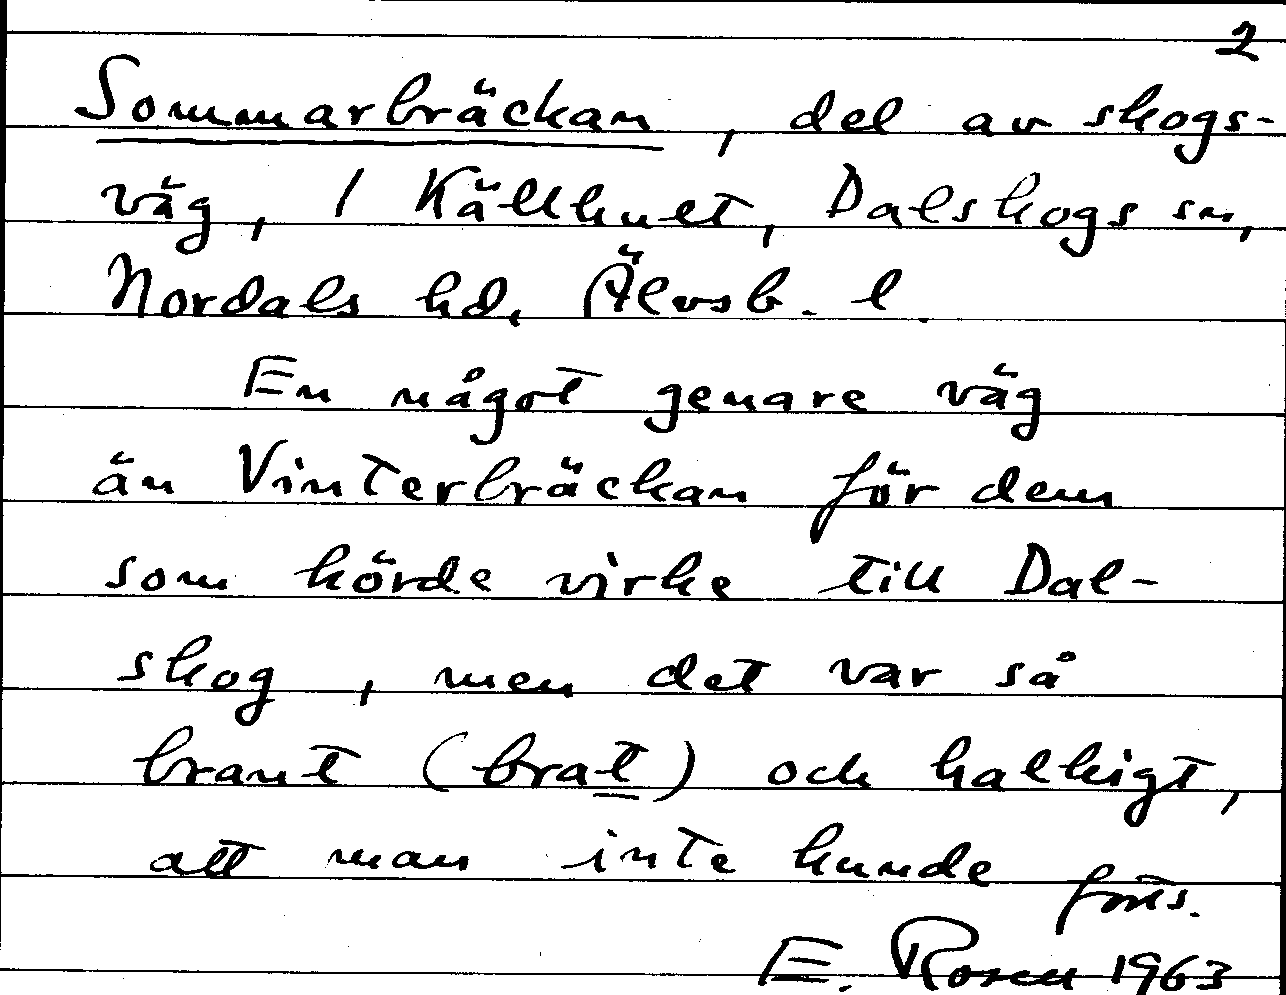 2
Sommarbräckan, del av skogs-
väg, 1 Källhult, Dalskogs sn,
Nordals hd, Älvsb. l.
En något genare väg
än Vinterbräckan för dem
som körde virke till Dal-
skog, men det var så
brant (brat) och halkigt,
att man inte kunde forts.
E. Rosen 1963